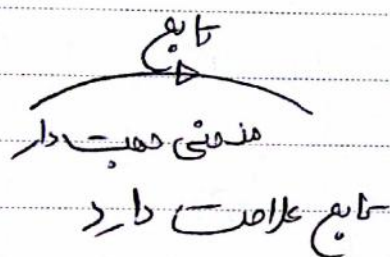 تابع
منحنی جهت دار
تابع علامت دارد